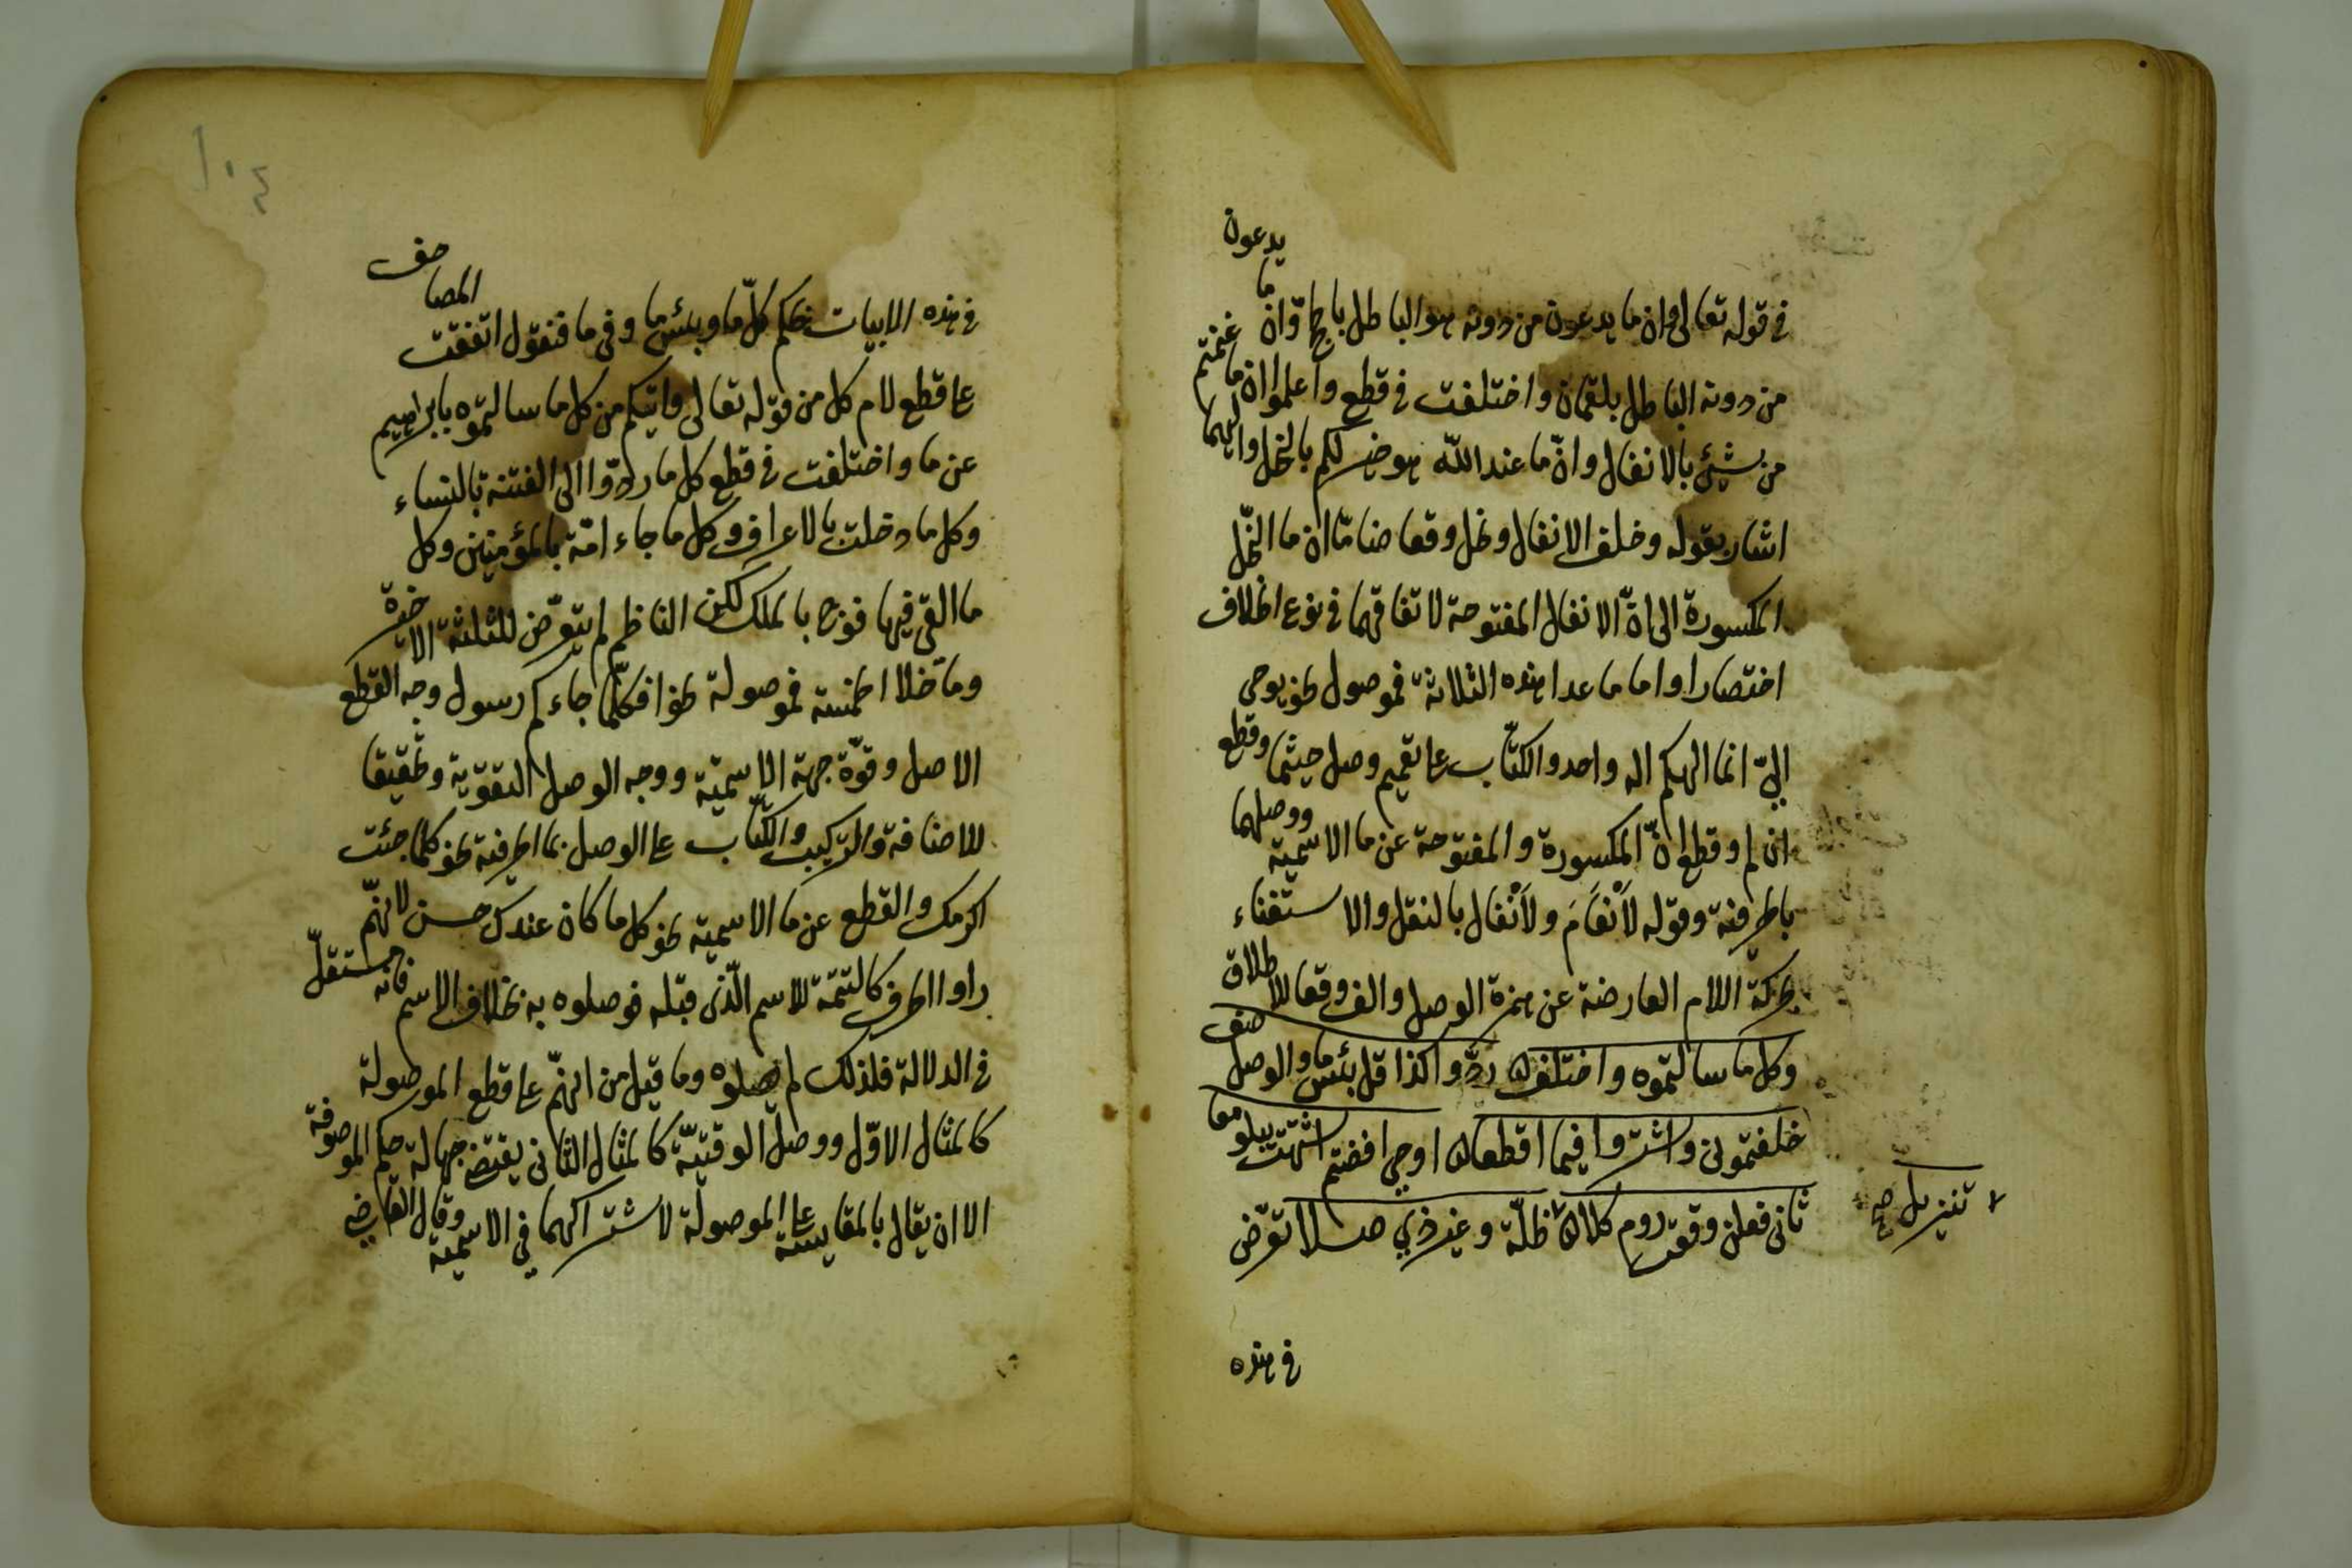 في قوله تعالى وان ما يدعون من دونه هو الباطل بالحج وانّ ما يدعون
من دونه الباطل بلقمان واختلفت في قطع واعلموا ان ما غنمتم
من شيئ بالانفال وانّ ما عند الله هو خير لكم بالنحل واليهما
اشار بقوله وخلف الانفال ونحل وقعا ضامّا ان ما النحل
المكسورة الى انّ الانفال المفتوحة لاتفاقهما في نوع الخلاف
اختصارا واما ما عدا هذه الثلاثة فموصول نحو يوحى
اليّ انما الهكم اله واحد والكتّاب على تعميم وصل حيثما وقطع
ان لم وقطع انّ المكسورة والمفتوحة عن ما الاسمية ووصلهما
بالحرفية وقوله لَانْعَامَ ولَانْفال بالنقل والاستغناء
بحركة اللام العارضة عن همزة الوصل والف وقعا للاطلاق
وكل ما سالتموه واختلف ردّوا كذا قل بئس ما والوصل صف
خلفتموني واشتروا في ما اقطعا اوحي افضتم اشتهت يبلو معا
ثاني فعلن وقعت روم كلا تنزيل ظلّة وغير ذي صلا تعرّض
تنزيل صح
في هذه
١٠٤
في هذه الابيات لحكم كلّ ما وبئس ما وفي ما فنقول اتفقت المصاحف
على قطع لام كل من قوله تعالى واتيكم من كل ما سالتموه بابراهيم
عن ما واختلفت في قطع كل ما ردّوا الى الفتنة بالنساء
وكل ما دخلت بالاعراف وكل ما جاء امّة بالمؤمنين وكل
ما القي فيها فوج بالملك لكن الناظم لم يتعرّض للثلثة الاخيرة
وما خلا الخمسة فموصولة نحو افكلّما جاءكم رسول وجه القطع
الاصل وقوّة جهة الاسمية ووجه الوصل التقوية وتحقيقا
للاضافة والتركيب والكتّاب على الوصل بما الحرفية نحو كلما جئت
اكرمك والقطع عن ما الاسمية نحو كل ما كان عندك حسن لانهّم
راوا الحرف كالتتمّة للاسم الّذي قبله فوصلوه به بخلاف الاسم فانه مستقلّ
في الدلالة فلذلك لم يصلوه وما قيل من انهّم على قطع الموصولة
كالمثال الاوّل ووصل الوقتيّة كالمثال الثاني يقتضي جهالة حكم الموصوفة
الا ان يقال بالمقايسة على الموصولة لاشتراكهما في الاسمية وقال الفارضي